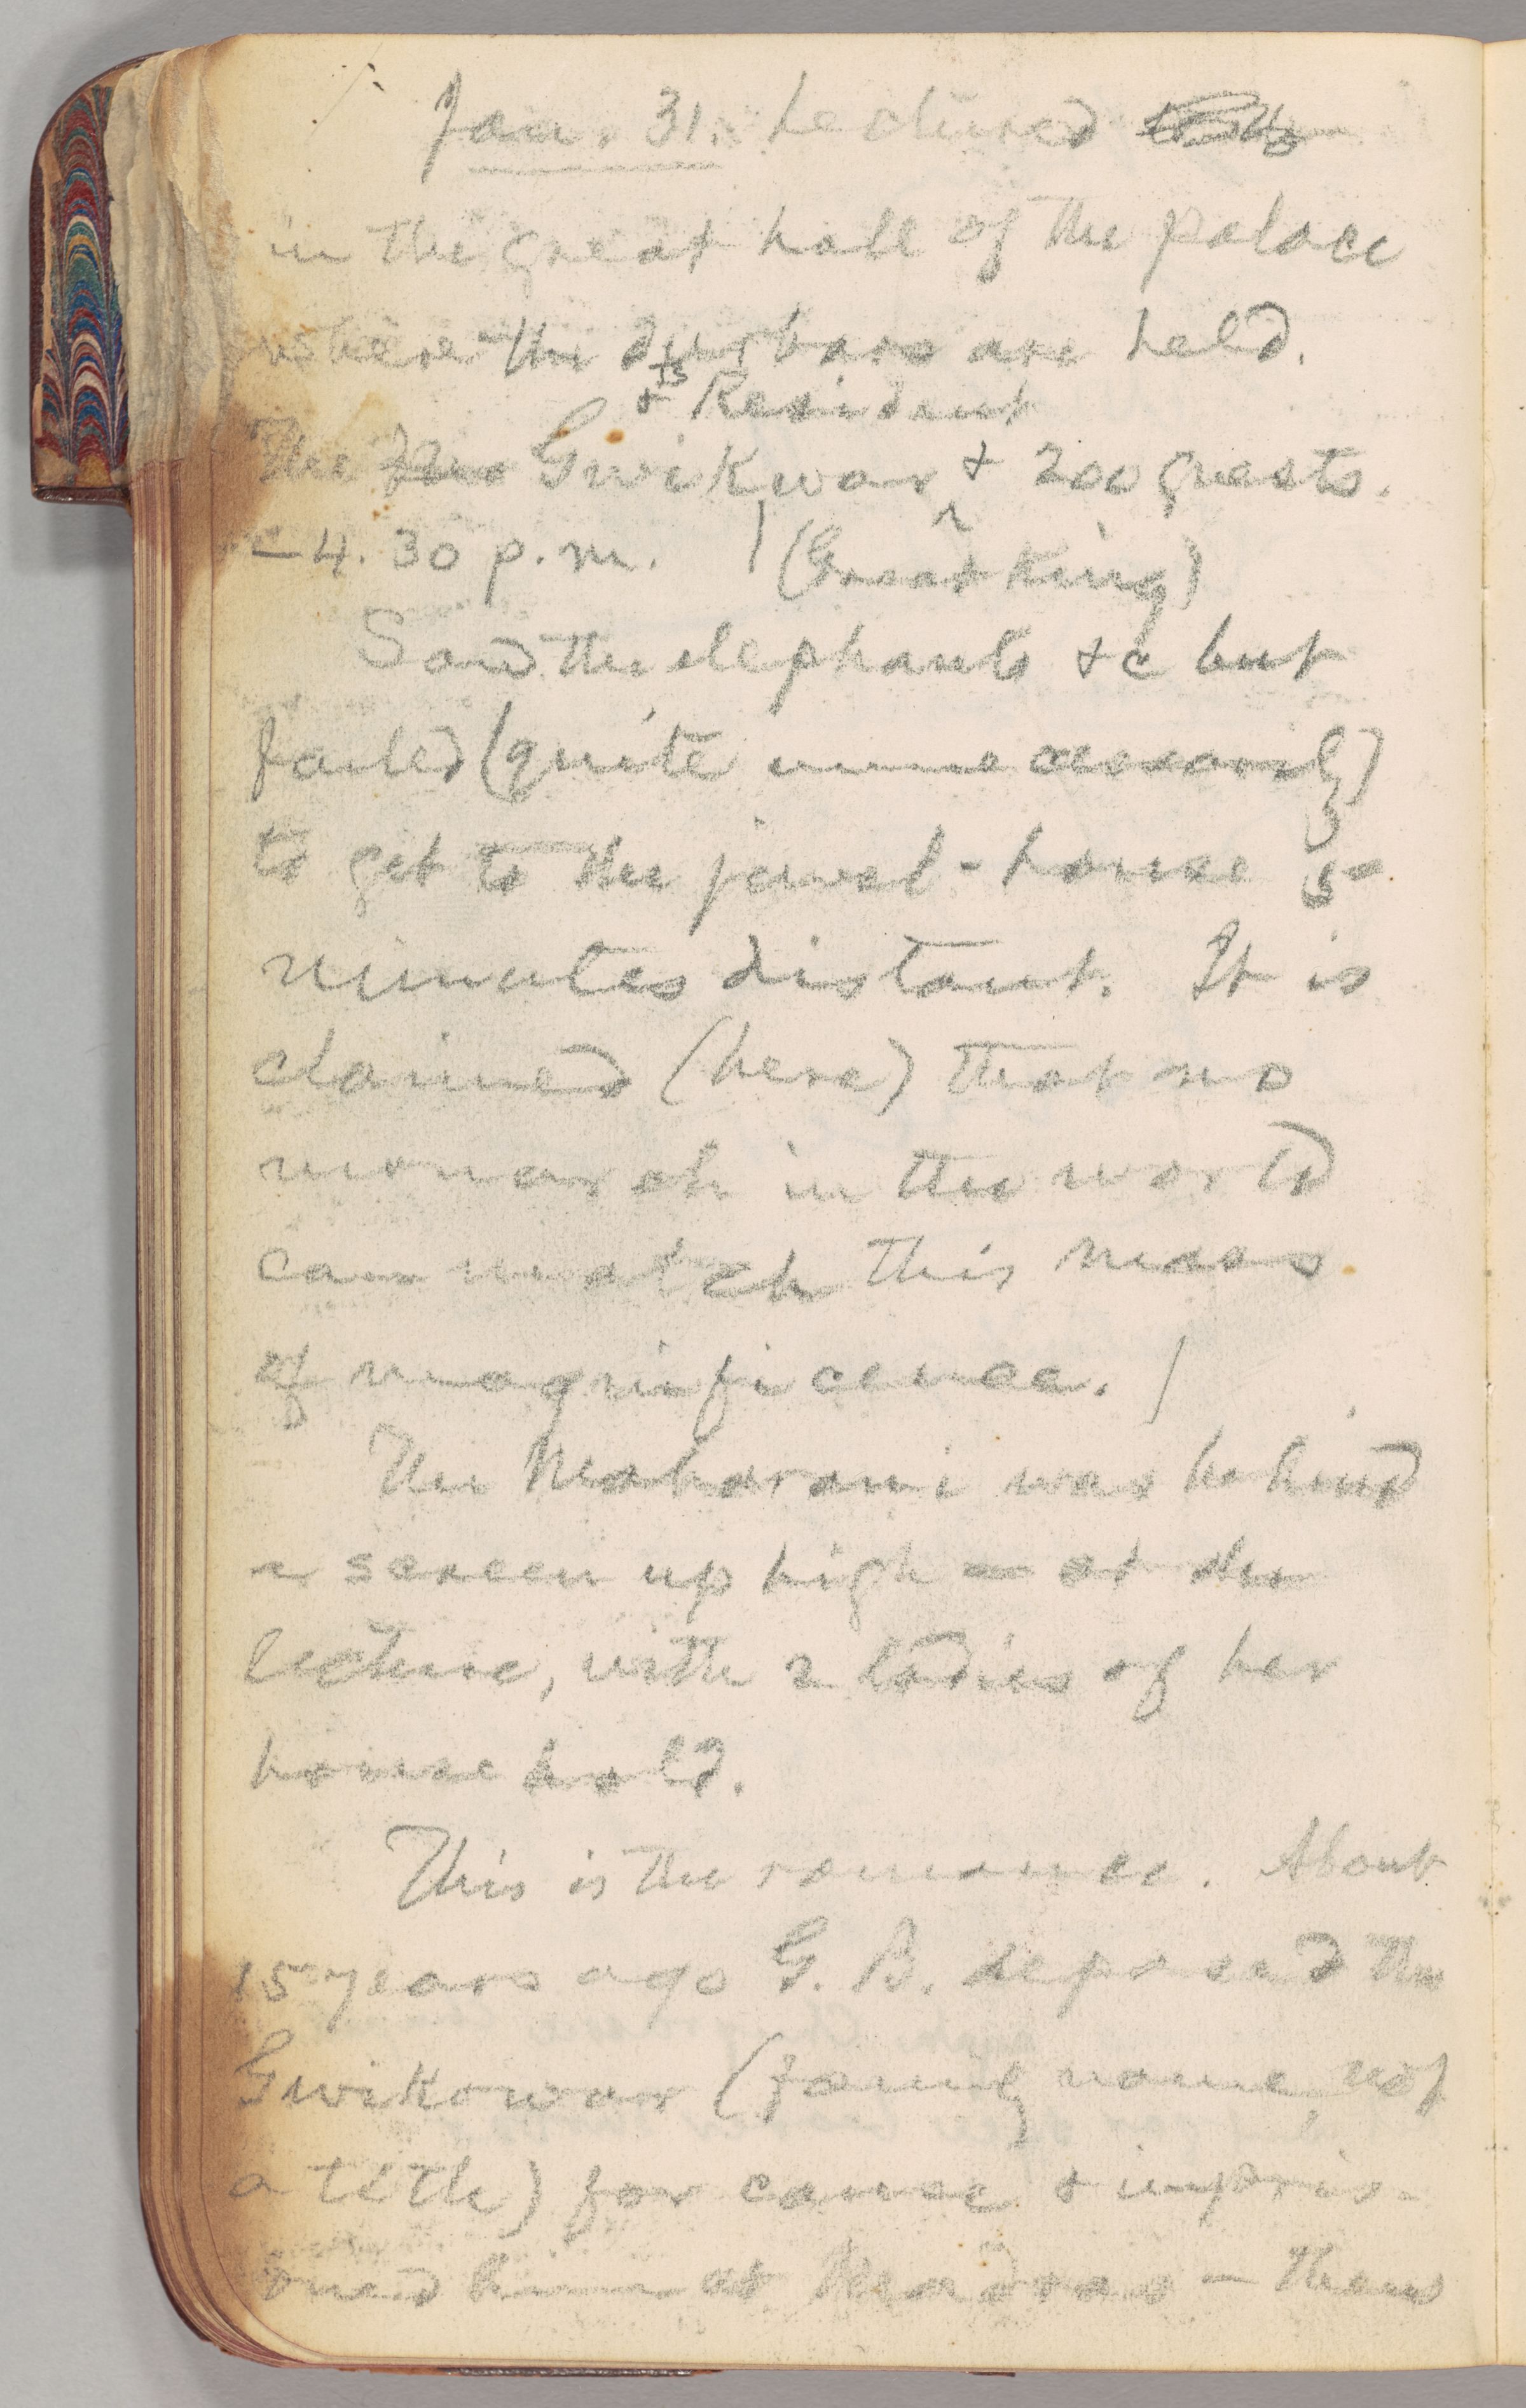 Jan. 31. Lectured
in the great hall of the palace
where the durbars are held.
+ Resident
The Gwikwar + 200 guests.
– 4.30 p.m. | (Great King)
Saw the elephants &c but
failed (quite unnecessarily)
to get to the jewel-house 5
minutes distant. It is
claimed (here) that no
monarch in the world
can match this mass
of magnificence. /
The Maharani was behind
a screen up high — at the
lecture, with 2 ladies of her
household.
This is the romance. About
15 years ago G. B. deposed the
Gwikowar (family name, not
a title) for cause & impris-
oned him at Madras — then